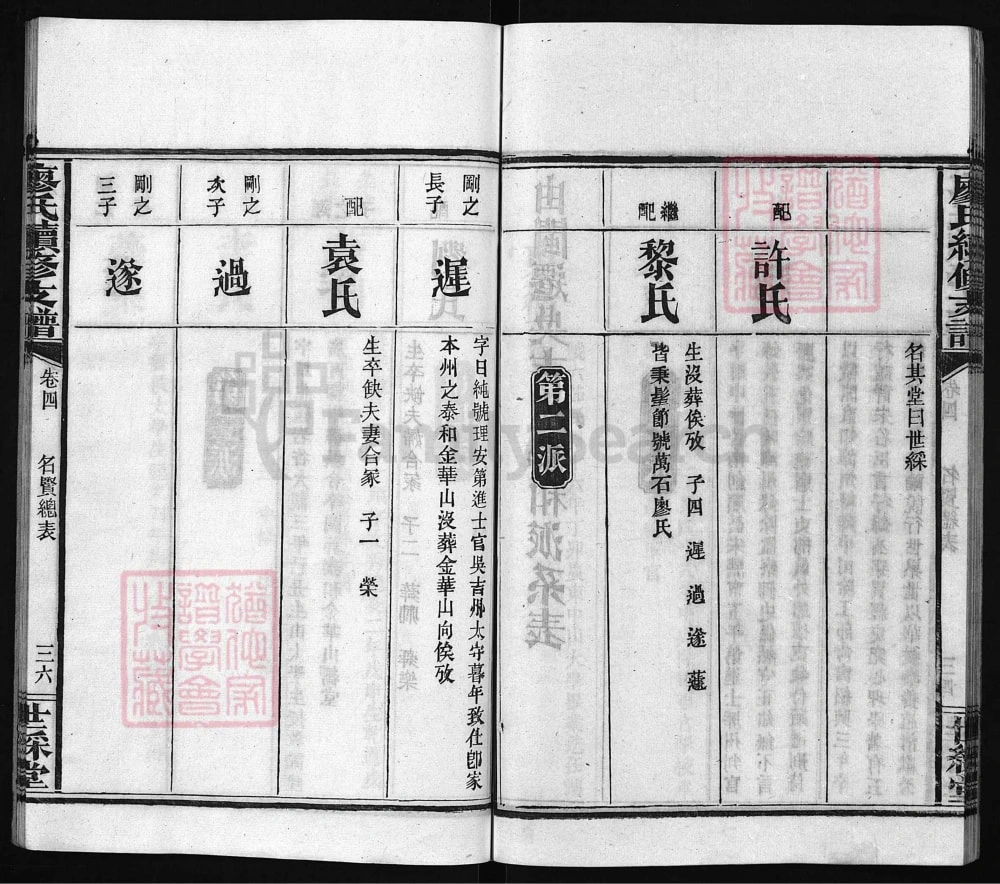 名其堂曰世綵
配
許氏
生沒葬俟攷 子四 遲 過 遂 薳
繼配
黎氏
皆秉髻節號萬石廖氏
第二派
剛之長子
遲
字日純號理安第進士官吳吉州太守暮年致仕卽家
本州之泰和金華山沒葬金華山向俟攷
配
袁氏
生卒缺夫妻合冢 子一 榮
剛之次子
過
剛之三子
遂
廖氏續修支譜
卷四
名賢總表
三六
世綵堂
FamilySearch